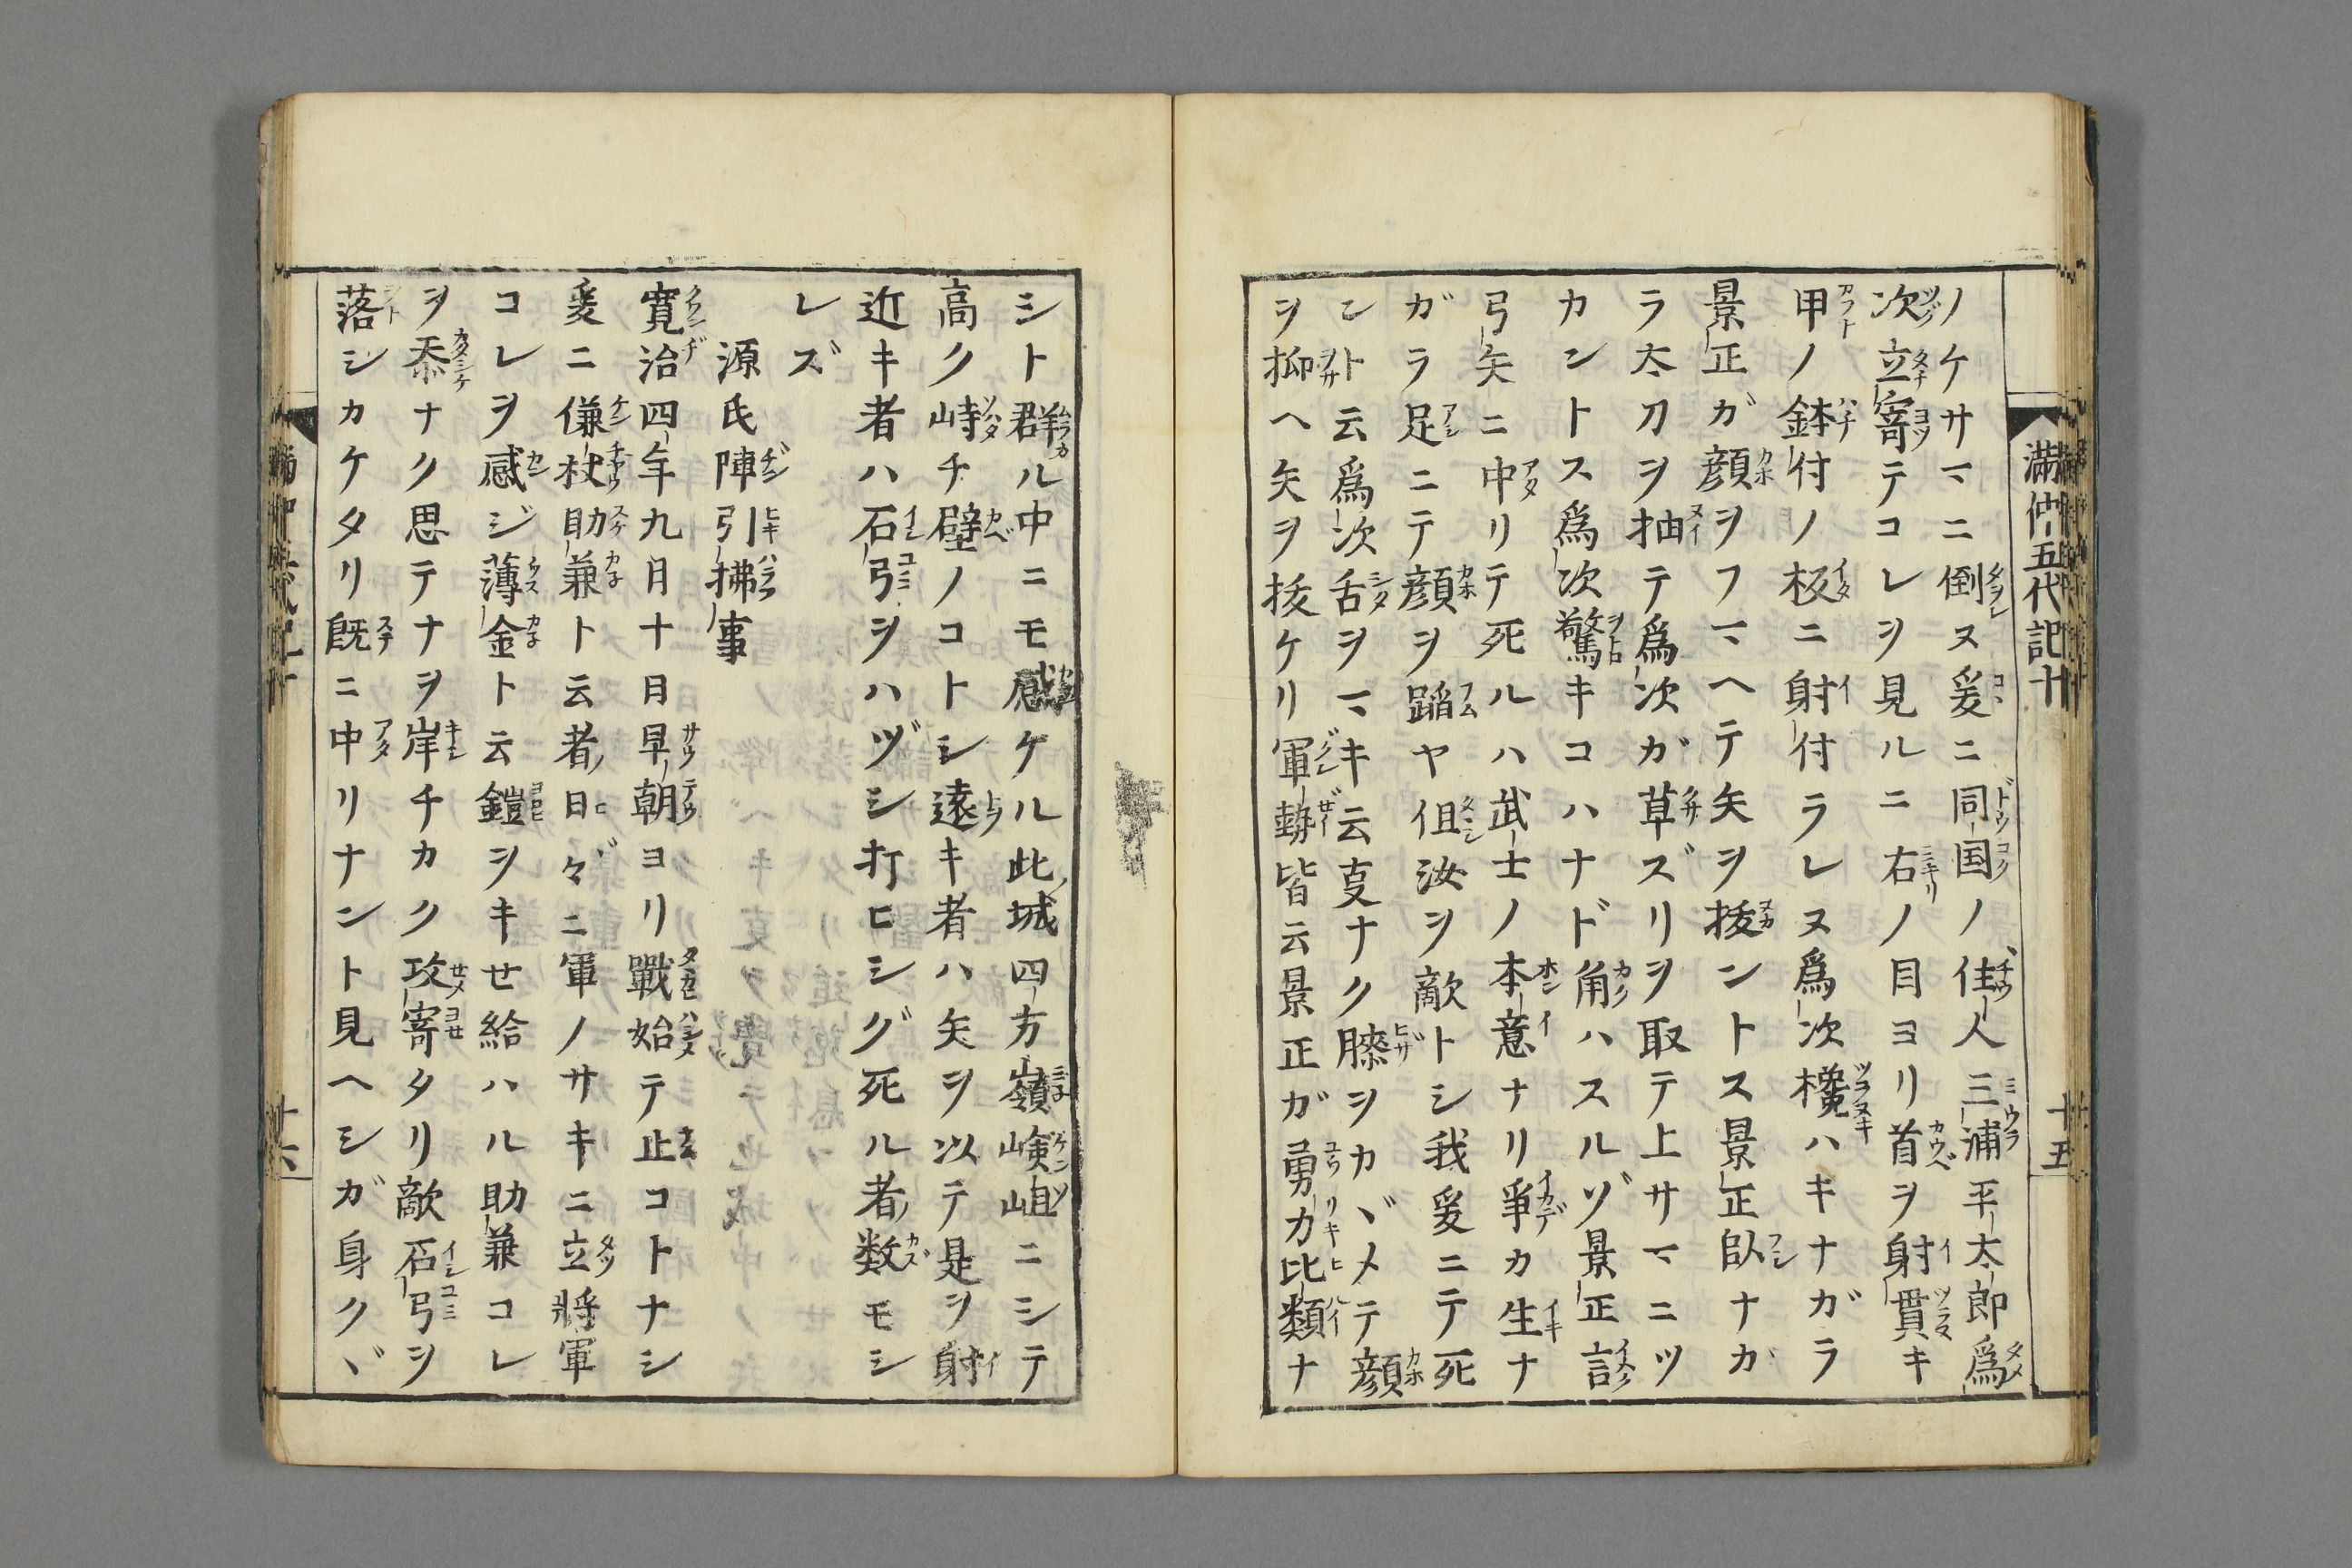 満仲五代記十
十五
ノケサマニ倒ヌ爰ニ同国ノ住人三浦平太郎為
次立寄テコレヲ見ルニ右ノ目ヨリ首ヲ射貫キ
甲ノ鉢付ノ板ニ射付ラレヌ為次欃ハキナガラ
景正ガ顔ヲフマヘテ矢ヲ抜ントス景正臥ナガ
ラ太刀ヲ抽テ為次ガ草ズリヲ取テ上サマニツ
カントス為次驚キコハナド角ハスルゾ景正言
弓矢ニ中リテ死ルハ武士ノ本意ナリ争カ生ナ
ガラ足ニテ顔ヲ蹈ヤ但汝ヲ敵トシ我爰ニテ死
ント云為次舌ヲマキ云叓ナク膝ヲカヾメテ顔
ヲ抑ヘ矢ヲ抜ケリ軍勢皆云景正ガ勇力比類ナ
シト群ル中ニモ感ケル此城四方嶺険岨ニシテ
高ク峙チ壁ノコトシ遠キ者ハ矢ヲ以テ是ヲ射
近キ者ハ石弓ヲハヅシ打ヒシグ死ル者数モシ
レズ
源氏陣引拂事
寛治四年九月十日早朝ヨリ戰始テ止コトナシ
爰ニ傔杖助兼ト云者日々ニ軍ノサキニ立將軍
コレヲ感ジ薄金ト云鎧ヲキセ給ハル助兼コレ
ヲ忝ナク思テナヲ岸チカク攻寄タリ敵石弓ヲ
落シカケタリ既ニ中リナント見ヘシガ身クヾ